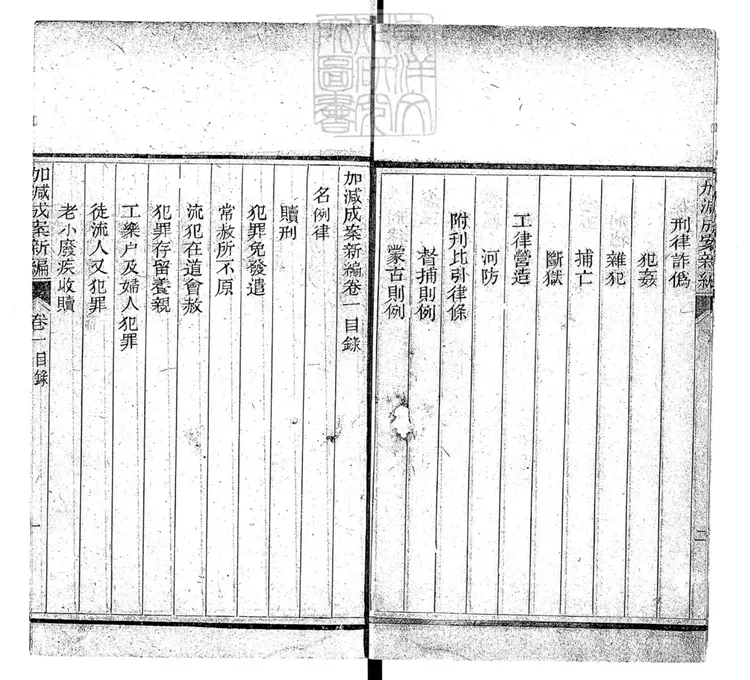 加減成案新編
刑律詐僞
犯姦
雜犯
捕亡
斷獄
工律營造
河防
附刊比引律條
督捕則例
蒙古則例
二
加減成案新編卷一目錄
名例律
贖刑
犯罪免發遣
常赦所不原
流犯在道會赦
犯罪存留養親
工樂户及婦人犯罪
徒流人又犯罪
老小廢疾收贖
加減成案新編 卷一目錄
一